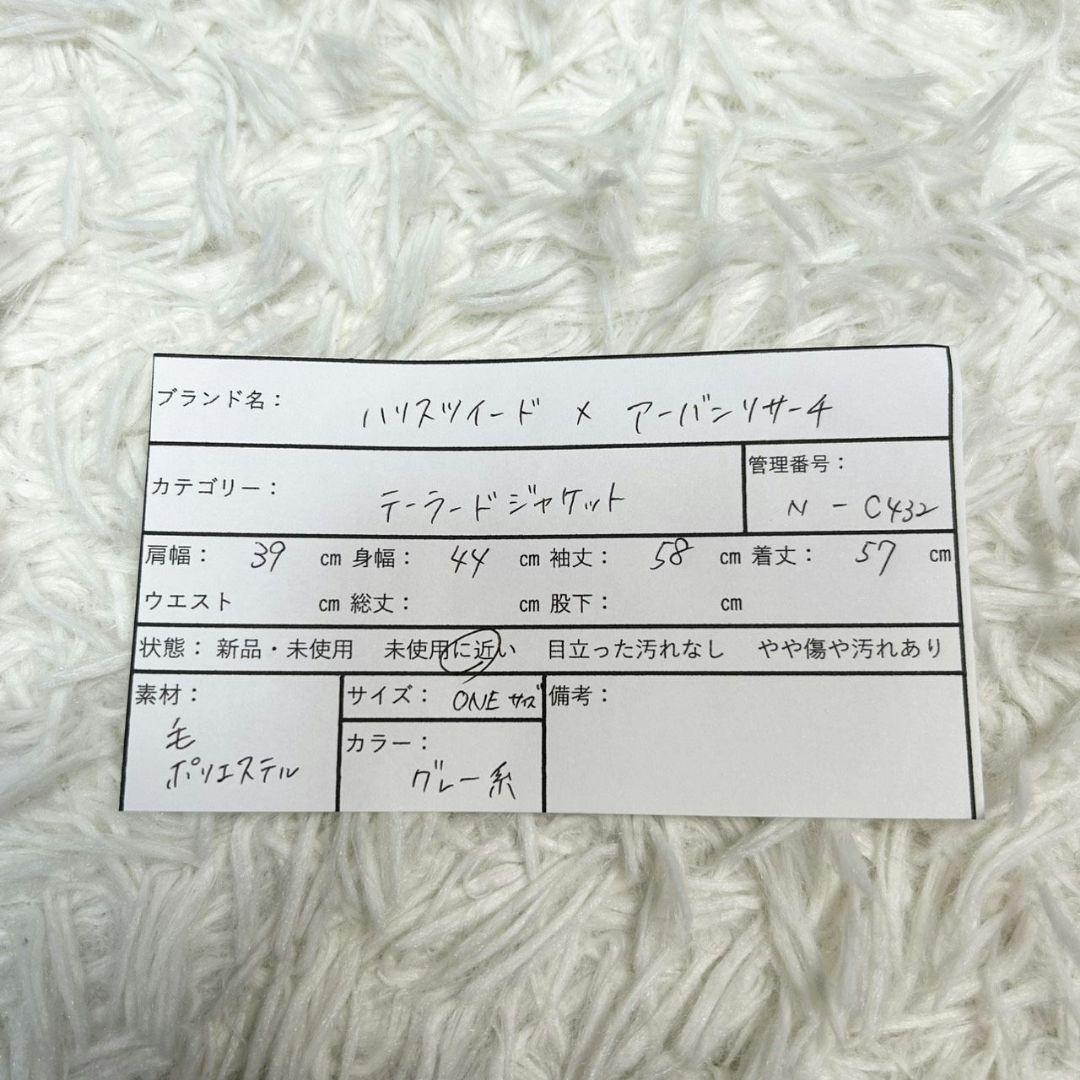 ブランド名： ハリスツイード × アーバンリサーチ
カテゴリー： テーラードジャケット
管理番号： N - C432
肩幅： 39 cm 身幅： 44 cm 袖丈： 58 cm 着丈： 57 cm
ウエスト cm 総丈： cm 股下： cm
状態： 新品・未使用 未使用に近い 目立った汚れなし やや傷や汚れあり
素材： 毛 ポリエステル
サイズ： ONE サイズ
カラー： グレー系
備考：